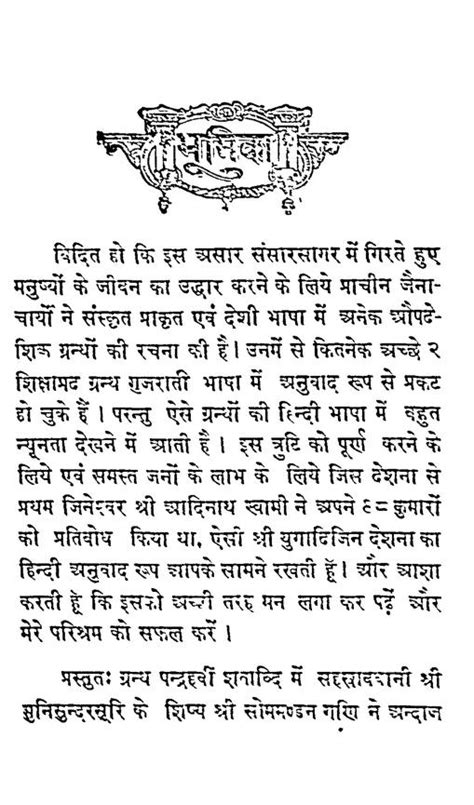 भूमिका
विदित हो कि इस असार संसारसागर में गिरते हुए
मनुष्यों के जीवन का उद्धार करने के लिये प्राचीन जैना-
चार्यों ने संस्कृत प्राकृत एवं देशी भाषा में अनेक औपदे-
शिक ग्रन्थों की रचना की है। उनमें से कितनेक अच्छे २
शिक्षाप्रद ग्रन्थ गुजराती भाषा में अनुवाद रूप से प्रकट
हो चुके हैं। परन्तु ऐसे ग्रन्थों की हिन्दी भाषा में बहुत
न्यूनता देखने में आती है। इस त्रुटि को पूर्ण करने के
लिये एवं समस्त जनों के लाभ के लिये जिस देशना से
प्रथम जिनेश्वर श्री आदिनाथ स्वामी ने अपने ९८ कुमारों
को प्रतिबोध किया था, ऐसी श्री युगादिजिन देशना का
हिन्दी अनुवाद रूप आपके सामने रखती हूँ। और आशा
करती हूँ कि इसको अच्छी तरह मन लगा कर पढ़ें और
मेरे परिश्रम को सफल करें।
प्रस्तुतः ग्रन्थ पन्द्रहवीं शताब्दि में सहस्रावधानी श्री
मुनिसुन्दरसूरि के शिष्य श्री सोममण्डन गणि ने अन्दाज